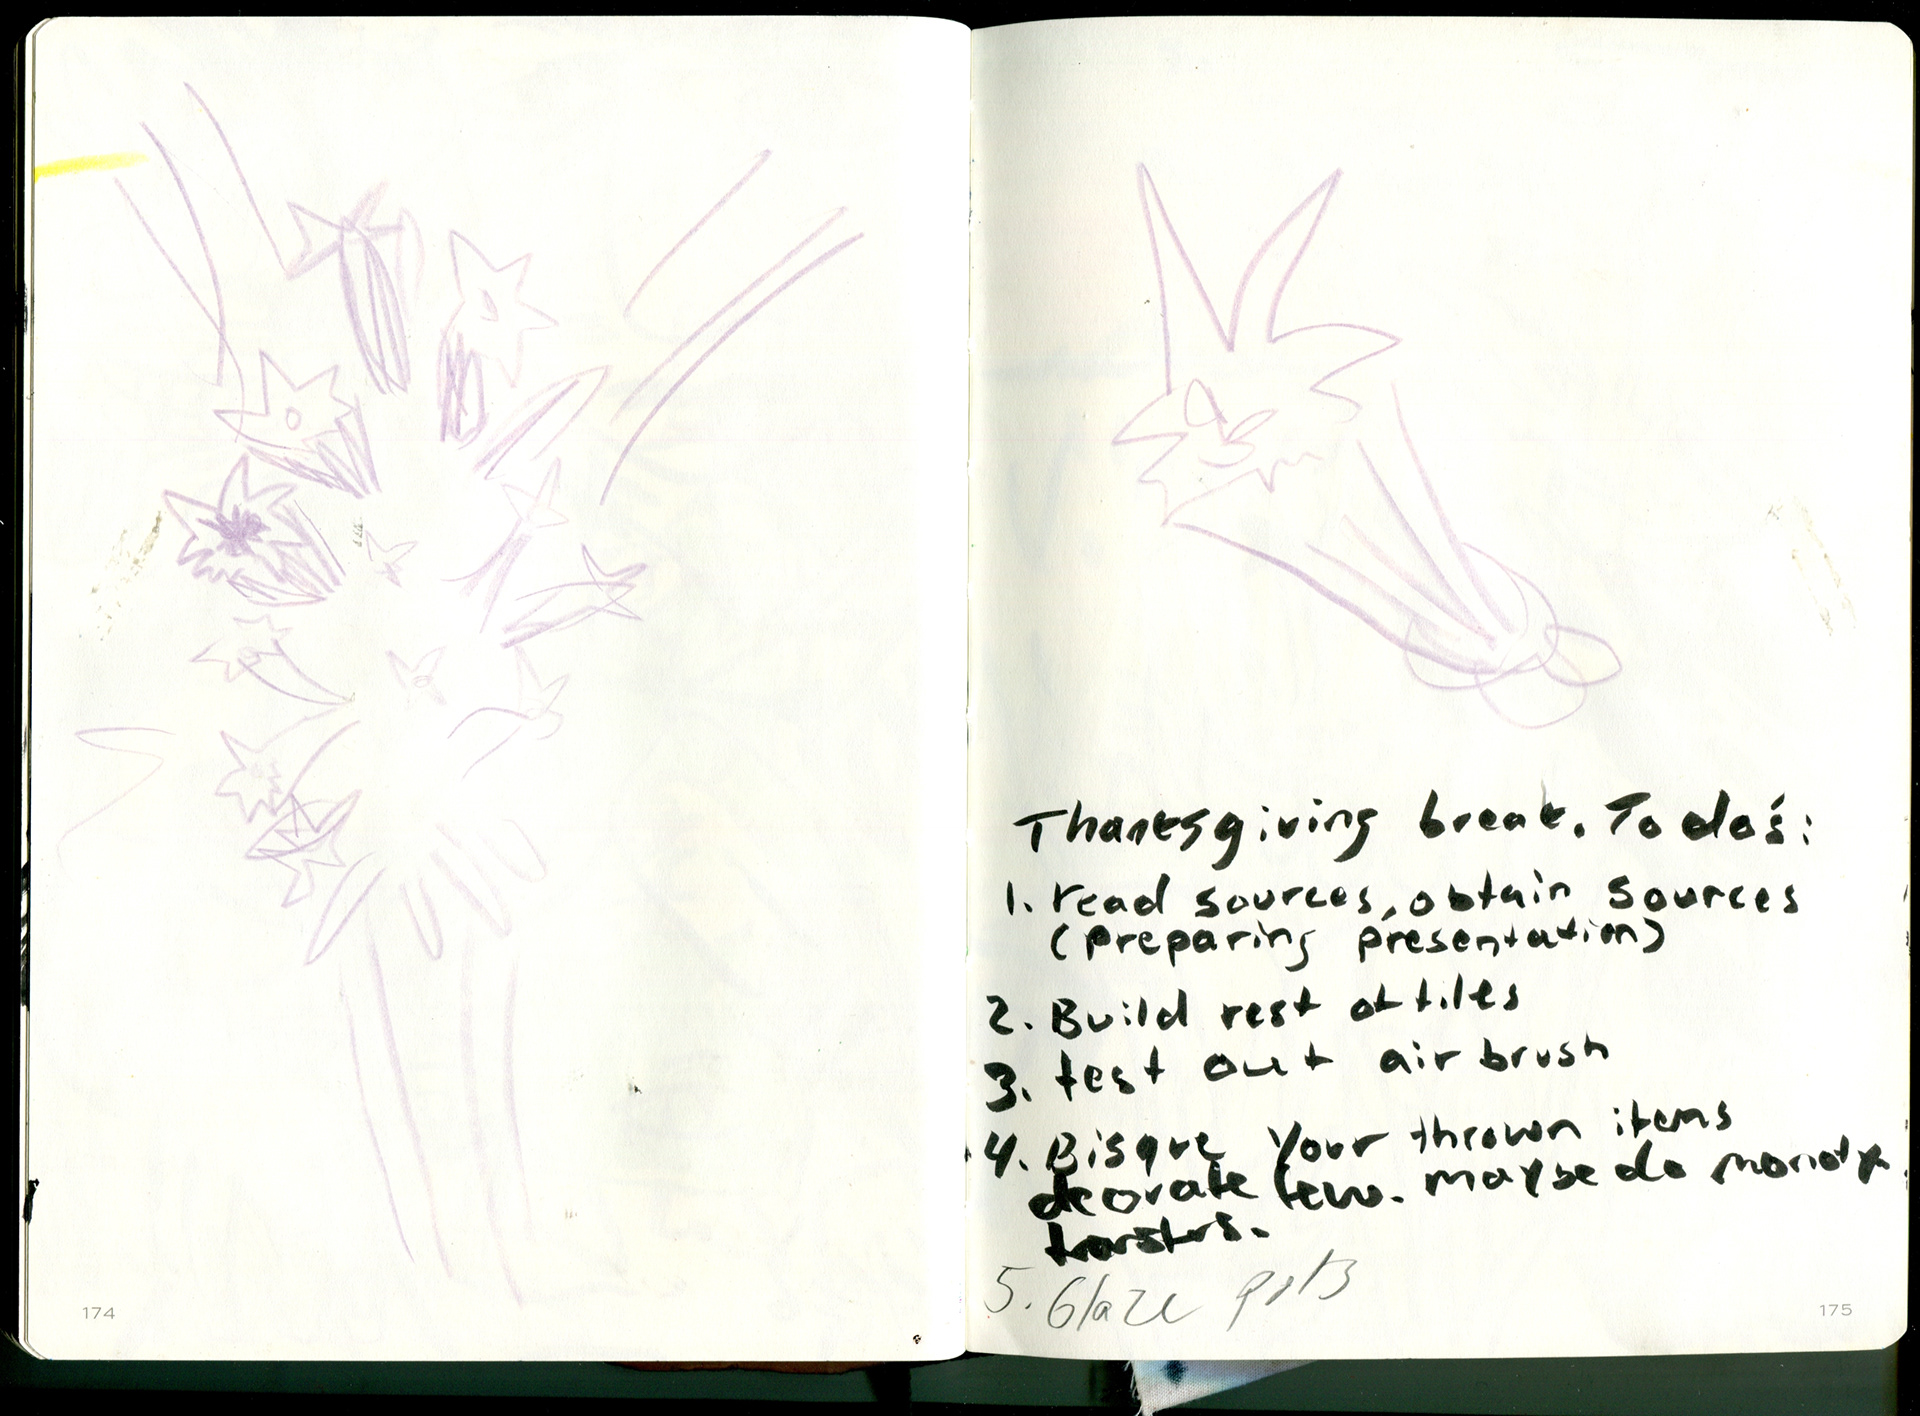 Thanksgiving break. To do's:
1. read sources, obtain sources
(preparing presentation)
2. Build rest of tiles
3. test out air brush
4. Bisque your thrown items
decorate few. maybe do
transfers.
5. Glaze pots
174
175